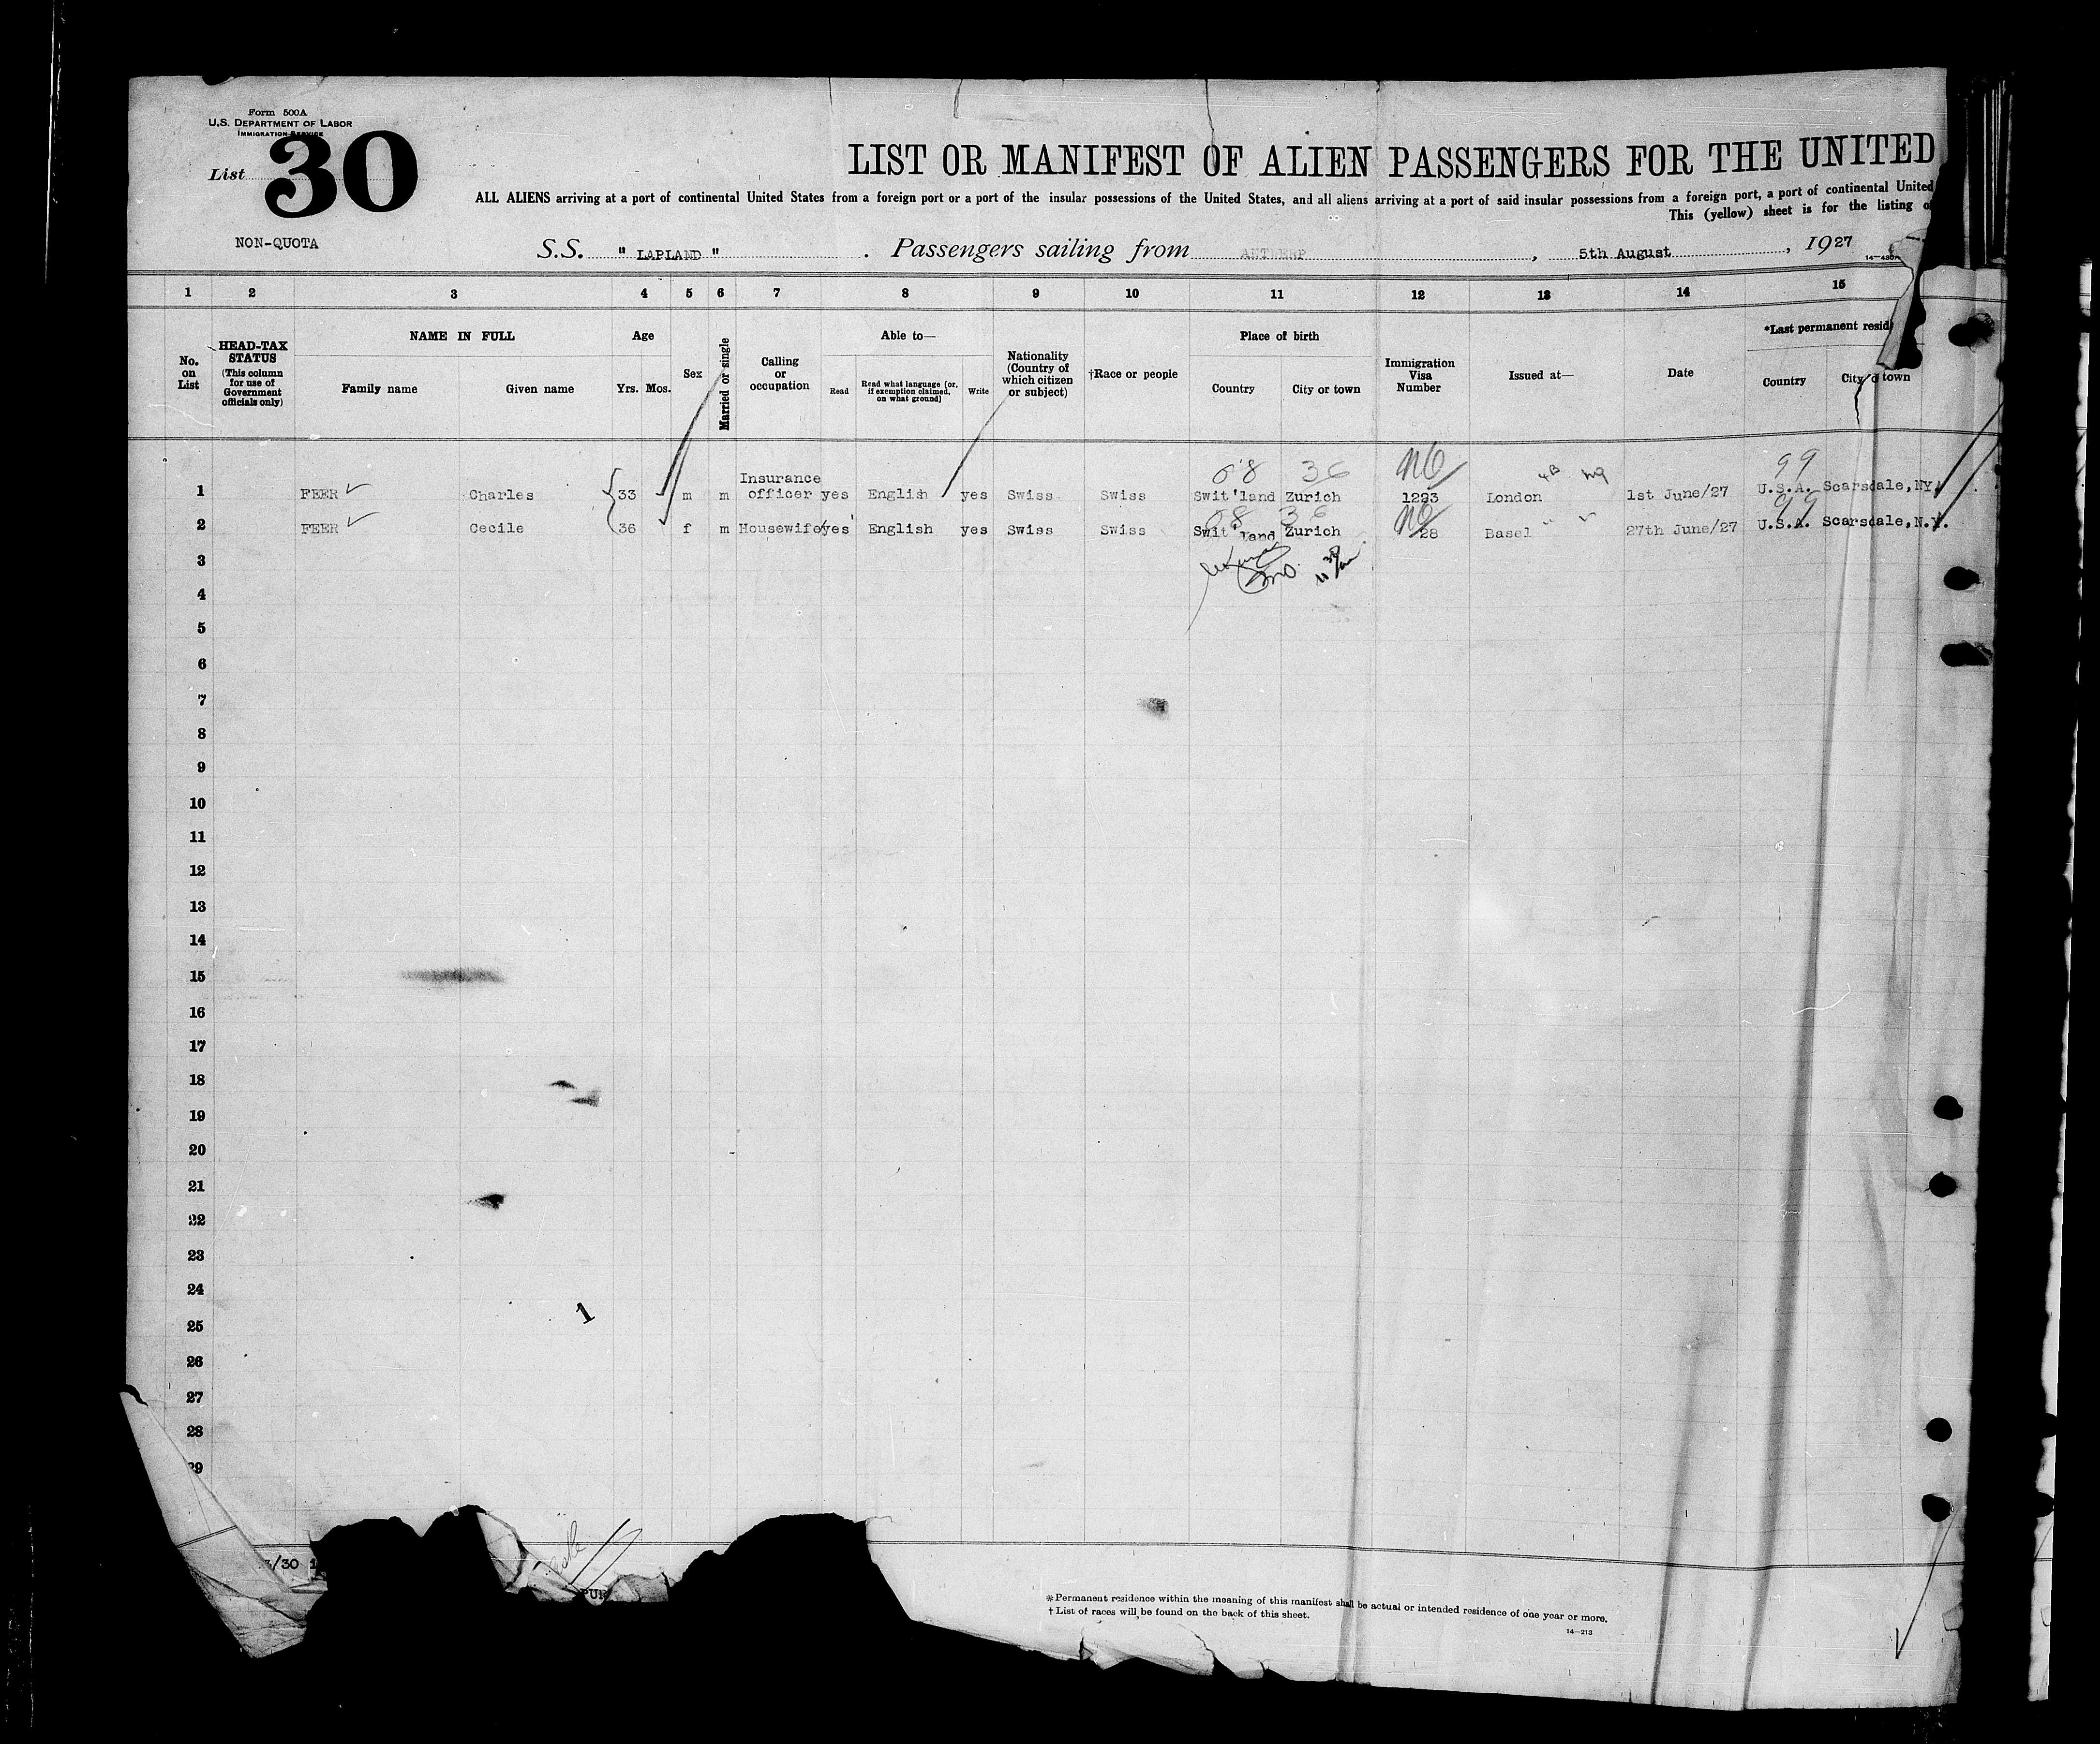 Form 500A
U.S. DEPARTMENT OF LABOR
IMMIGRATION SERVICE
List 30
LIST OR MANIFEST OF ALIEN PASSENGERS FOR THE UNITED
ALL ALIENS arriving at a port of continental United States from a foreign port or a port of the insular possessions of the United States, and all aliens arriving at a port of said insular possessions from a foreign port, a port of continental United
This (yellow) sheet is for the listing of
NON-QUOTA
S.S. " LAPLAND " . Passengers sailing from ANTWERP , 5th August , 1927
1 2 3 4 5 6 7 8 9 10 11 12 13 14 15
No. on List
HEAD-TAX STATUS
(This column for use of Government officials only)
NAME IN FULL
Family name Given name
Age
Yrs. Mos.
Sex
Married or single
Calling or occupation
Able to—
Read
Read what language [or, if exemption claimed, on what ground]
Write
Nationality (Country of which citizen or subject)
†Race or people
Place of birth
Country City or town
Immigration Visa Number
Issued at—
Date
*Last permanent resid
Country City or town
08 36 99
1 FEER Charles 33 m m Insurance officer yes English yes Swiss Swiss Swit'land Zurich 1293 London 1st June/27 U.S.A. Scarsdale,NY.
08 36 99
2 FEER Cecile 36 f m Housewife yes English yes Swiss Swiss Swit'land Zurich 28 Basel 27th June/27 U.S.A. Scarsdale,N.Y.
3
4
5
6
7
8
9
10
11
12
13
14
15
16
17
18
19
20
21
22
23
24
1
25
26
27
28
29
3/30
*Permanent residence within the meaning of this manifest shall be actual or intended residence of one year or more.
†List of races will be found on the back of this sheet.
14—213